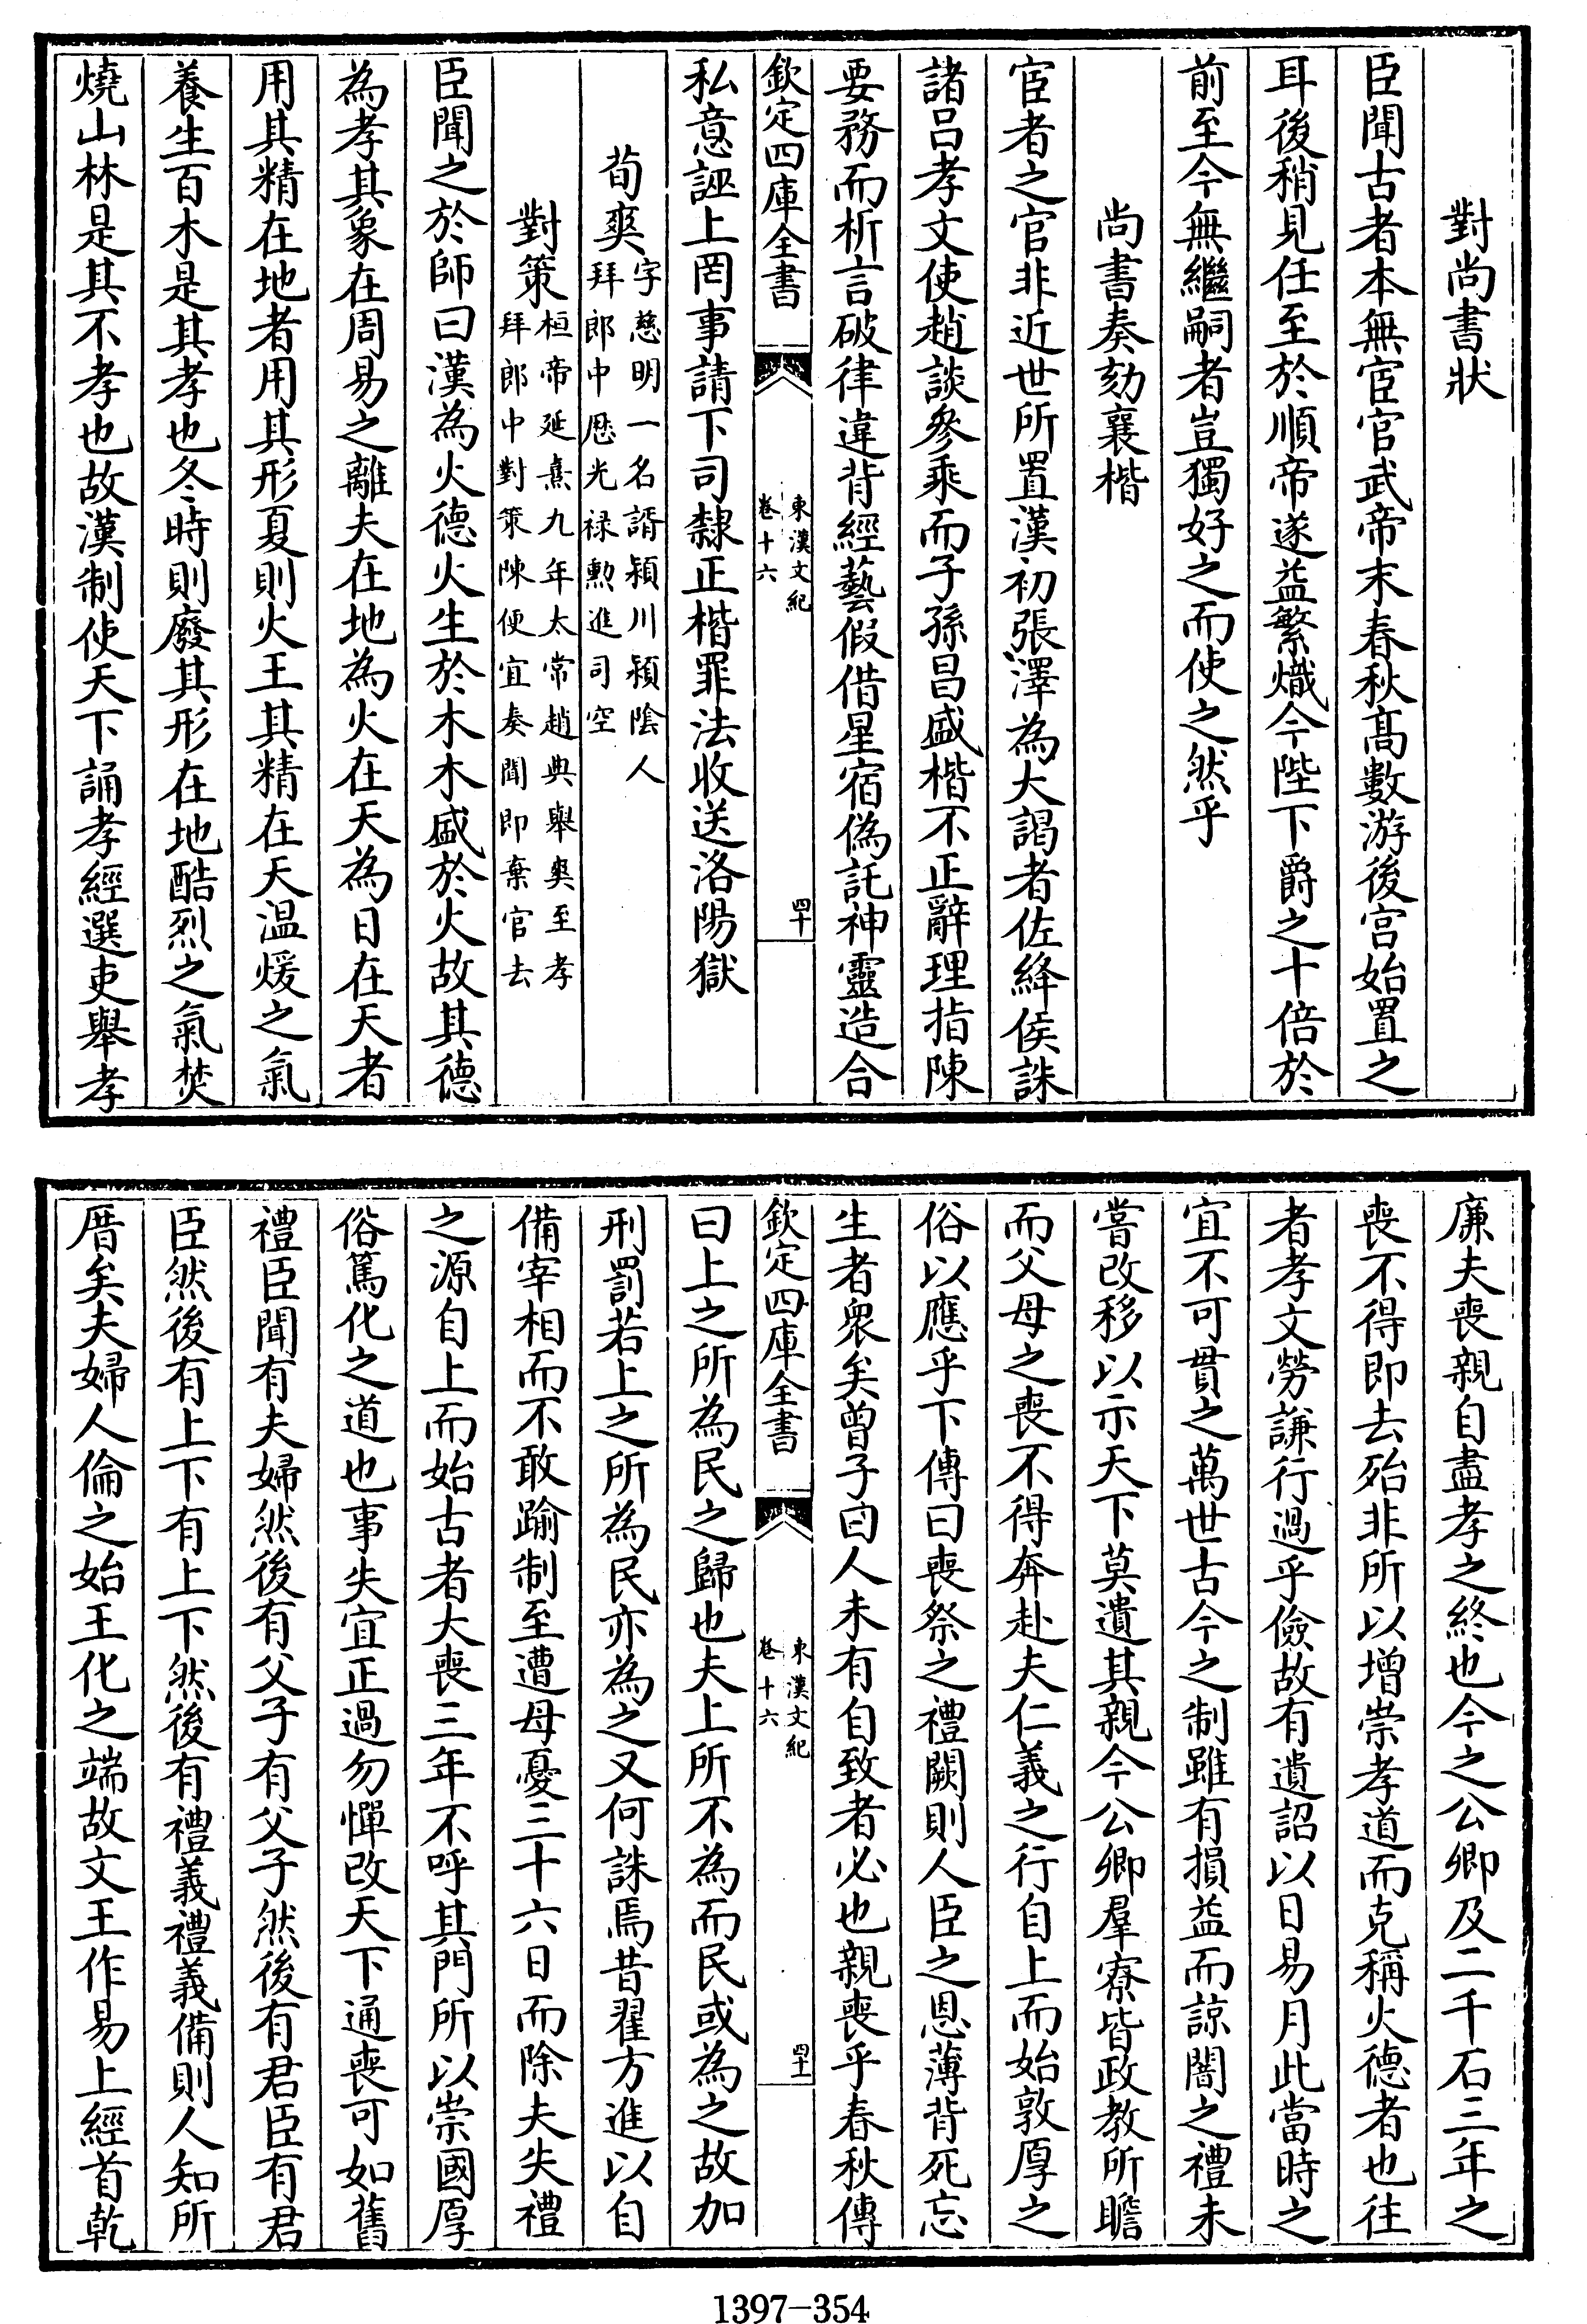 對尚書狀
臣聞古者本無宦官武帝末春秋髙數游後宫始置之
耳後稍見任至於順帝遂益繁熾今陛下爵之十倍於
前至今無繼嗣者豈獨好之而使之然乎
尚書奏劾襄楷
宦者之官非近世所置漢初張澤為大謁者佐絳侯誅
諸吕孝文使趙談參乘而子孫昌盛楷不正辭理指陳
要務而析言破律違背經藝假借星宿偽託神靈造合
欽定四庫全書
東漢文紀
卷十六
四十
私意誣上罔事請下司隸正楷罪法收送洛陽獄
荀爽字慈明一名諝潁川潁隂人
拜郎中厯光禄勲進司空
對策桓帝延熹九年太常趙典舉爽至孝
拜郎中對策陳便宜奏聞即棄官去
臣聞之於師曰漢為火德火生於木木盛於火故其德
為孝其象在周易之離夫在地為火在天為日在天者
用其精在地者用其形夏則火王其精在天温煖之氣
養生百木是其孝也冬時則廢其形在地酷烈之氣焚
燒山林是其不孝也故漢制使天下誦孝經選吏舉孝
廉夫喪親自盡孝之終也今之公卿及二千石三年之
喪不得即去殆非所以增崇孝道而克稱火德者也往
者孝文勞謙行過乎儉故有遺詔以日易月此當時之
宜不可貫之萬世古今之制雖有損益而諒闇之禮未
嘗改移以示天下莫遺其親今公卿羣寮皆政教所瞻
而父母之喪不得奔赴夫仁義之行自上而始敦厚之
俗以應乎下傳曰喪祭之禮闕則人臣之恩薄背死忘
生者衆矣曾子曰人未有自致者必也親喪乎春秋傳
欽定四庫全書
東漢文紀
卷十六
四十一
曰上之所為民之歸也夫上所不為而民或為之故加
刑罰若上之所為民亦為之又何誅焉昔翟方進以自
備宰相而不敢踰制至遭母憂三十六日而除夫失禮
之源自上而始古者大喪三年不呼其門所以崇國厚
俗篤化之道也事失宜正過勿憚改天下通喪可如舊
禮臣聞有夫婦然後有父子有父子然後有君臣有君
臣然後有上下有上下然後有禮義禮義備則人知所
厝矣夫婦人倫之始王化之端故文王作易上經首乾
1397-354